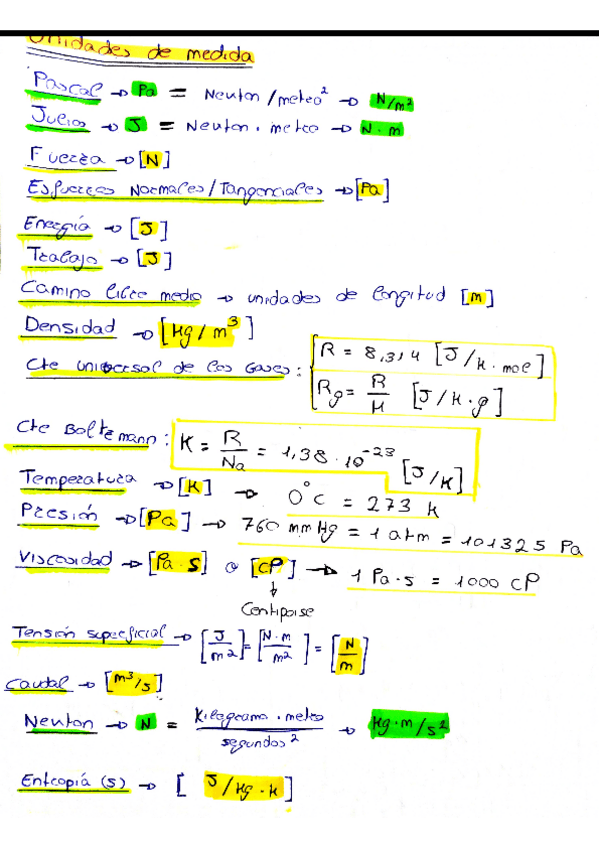 Unidades de medida
Pascal → Pa = Newton/metro² → N/m²
Julios → J = Newton · metro → N · m
Fuerza → [N]
Esfuerzos Normales/Tangenciales → [Pa]
Energía → [J]
Trabajo → [J]
Camino libre medio → unidades de longitud [m]
Densidad → [Kg/m³]
Cte universal de los Gases: R = 8,314 [J/K·mol]
Rg = R/M [J/K·g]
Cte Boltzmann: K = R/Na = 1,38 · 10⁻²³ [J/K]
Temperatura → [K] → 0°C = 273 K
Presión → [Pa] → 760 mmHg = 1 atm = 101325 Pa
Viscosidad → [Pa·s] o [cP] → 1 Pa·s = 1000 cP
↓
Centipoise
Tensión superficial → [J/m²] = [N·m/m²] = [N/m]
Caudal → [m³/s]
Newton → N = Kilogramo · metro / segundos² → Kg·m/s²
Entropía (s) → [J/Kg·K]